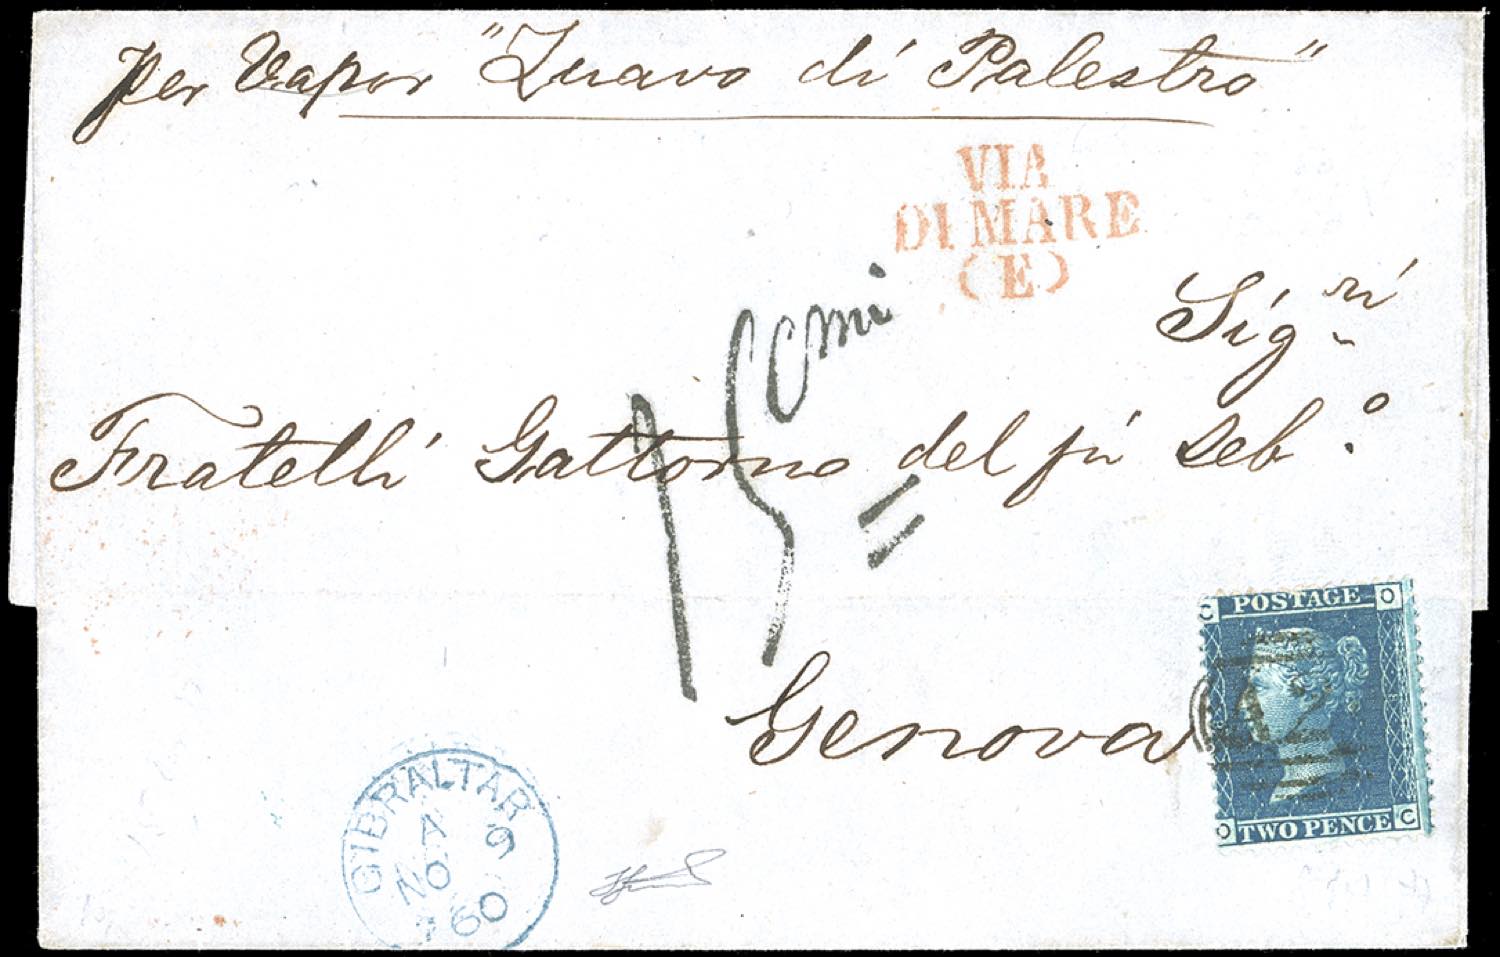 per Vapor "Zuavo di Palestro"
VIA
DI MARE
(E)
Sig.ri
Fratelli Gattorno del fù Seb.o
15 cmi =
Genova
C POSTAGE O
A2
O TWO PENCE C
GIBRALTAR
A
NO 9
60